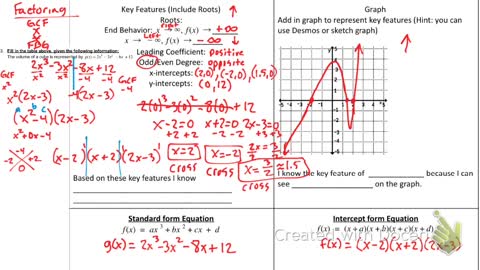 Factoring
GCF
X
X
FBG
Fill in the table above, given the following information:
The volume of a color is represented by
2x³-3x²-8x+12
GCF
x²
x²
-4 -4
GCF
-4
x²(2x-3) -4(2x-3)
a b c
(x²-4)(2x-3)
x²+0x-4
-4
-2 +2
0
(x-2)(x+2)(2x-3)
Key Features (Include Roots)
Roots:
right
End Behavior: x → ∞, f(x) → +∞
left
x → -∞, f(x) → -∞
Leading Coefficient: positive
Odd/Even Degree: opposite
x-intercepts: (2,0), (-2,0), (1.5,0)
y-intercepts: (0,12)
2(0)³-3(0)²-8(0)+12
x-2=0 x+2=0 2x-3=0
+2 +2 -2 -2 +3 +3
2x=3
2 2
x=2 x=-2 x=3/2≈1.5
cross cross cross
Based on these key features I know
Graph
Add in graph to represent key features (Hint: you
can use Desmos or sketch graph)
5
4
3
2
1
-5 -4 -3 -2 -1 1 2 3 4 5
-1
-2
-3
-4
-5
I know the key feature of because I can
see on the graph.
Standard form Equation
f(x) = ax³ + bx² + cx + d
g(x) = 2x³-3x²-8x+12
Intercept form Equation
f(x) = (x + a)(x + b)(x + c)(x + d)
f(x) = (x-2)(x+2)(2x-3)
Created with Doceri